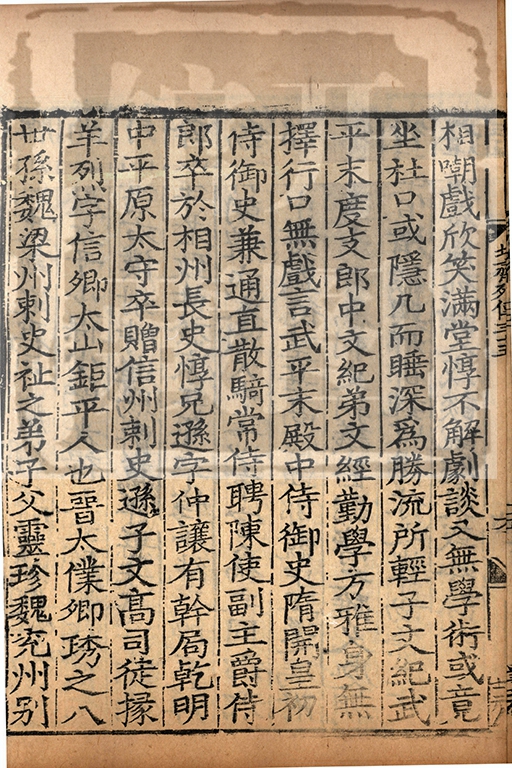 相嘲戲欣笑滿堂惇不解劇談又無學術或竟
坐杜口或隱几而睡深爲勝流所輕子文紀武
平末度支郎中文紀弟文經勤學方雅身無
擇行口無戲言武平末殿中侍御史隋開皇初
侍御史兼通直散騎常侍聘陳使副主爵侍
郎卒於相州長史惇兄遜字仲讓有幹局乾明
中平原太守卒贈信州刺史遜子文高司徒掾
羊烈字信卿太山鉅平人也晉太僕卿琇之八
世孫魏梁州刺史祉之弟子父靈珍魏兖州别